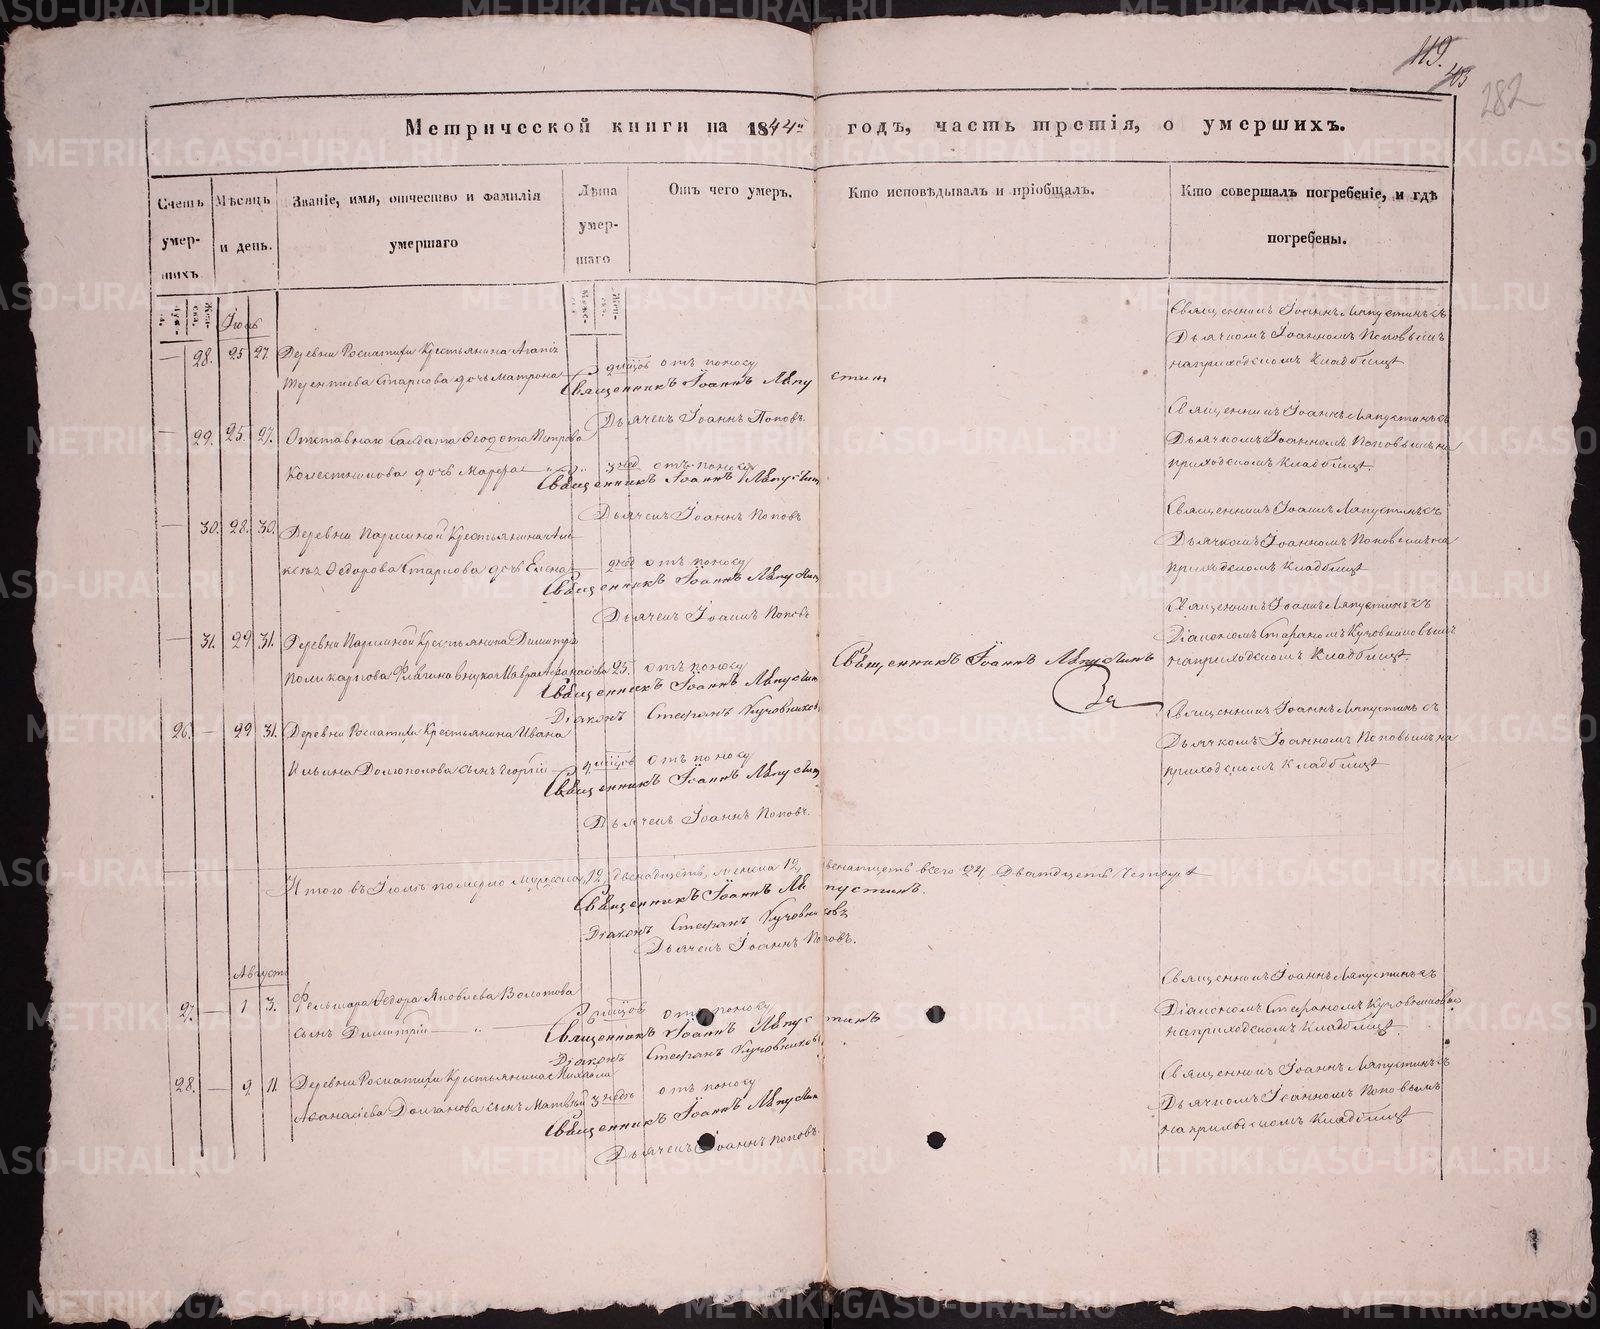 119.
403
282
Метрической книги на 1844й годъ, часть третія, о умершихъ.
Счетъ умер-шихъ
Мѣсяцъ и день.
Званіе, имя, отчество и фамилія умершаго
Лѣта умер-шаго
Отъ чего умеръ.
Кто исповѣдывалъ и пріобщалъ.
Кто совершалъ погребеніе, и гдѣ погребены.
Іюль
— 28. 25 27 Деревни Роспатихи Крестьянина
Старкова дочь Матрона — мцов отъ поносу
Священникъ Іоаннъ Ляпустинъ
Дьячекъ Іоаннъ Поповъ.
Священникъ Іоаннъ Ляпустинъ съ
Дьячкомъ Іоанномъ Поповымъ
на приходскомъ Кладбищѣ
— 29. 25. 27. Отставнаго Солдата Ѳеодота Петрова
дочь Марѳа — 3 нед отъ поносу
Священникъ Іоаннъ Ляпустин
Дьячекъ Іоаннъ Поповъ
Священникъ Іоаннъ Ляпустинъ съ
Дьячкомъ Іоанномъ Поповымъ на
приходскомъ Кладбищѣ.
— 30. 28. 30. Деревни Паршиной Крестьянина Але
ксѣя Ѳедорова Старкова дочь Елена — нед отъ поносу
Священникъ Іоаннъ Ляпустин
Дьячекъ Іоаннъ Поповъ
Священникъ Іоаннъ Ляпустинъ съ
Дьячкомъ Іоанномъ Поповымъ на
приходскомъ Кладбищѣ
— 31. 29 31. Деревни Паршиной Крестьянина Димитрія
Поликарпова внука Мавра 25. отъ поносу
Священникъ Іоаннъ Ляпустин
Діаконъ Стефанъ Кучовниковъ
Священникъ Іоаннъ Ляпустинъ
Священникъ Іоаннъ Ляпустинъ съ
Діакономъ Стефаномъ Кучовниковымъ
на приходскомъ Кладбищѣ.
26. — 29 31. Деревни Роспатихи Крестьянина Ивана
Ильина Долгополова сынъ Георгій — мцов отъ поносу
Священникъ Іоаннъ Ляпустин
Дьячекъ Іоаннъ Поповъ.
Священникъ Іоаннъ Ляпустинъ съ
Дьячкомъ Іоанномъ Поповымъ на
приходскомъ Кладбищѣ
Итого въ Іюлѣ померло Мужеска 12, двенадцать, женска 12, двенатцеть всего 24 Дватцеть Четыре
Священникъ Іоаннъ Ляпустинъ.
Діаконъ Стефанъ Кучовниковъ
Дьячекъ Іоаннъ Поповъ.
Августъ
27. — 1 3. Фельшара Ѳедора Яковлева Волотова
сынъ Димитрій — " — мцов отъ поносу
Священникъ Іоаннъ Ляпустинъ
Діаконъ Стефанъ Кучовниковъ
Священникъ Іоаннъ Ляпустинъ съ
Діакономъ Стефаномъ Кучовниковымъ
на приходскомъ Кладбищѣ.
28. — 9 11. Деревни Роспатихи Крестьянина Михаила
Аѳанасіева Долганова сынъ Матвѣй 3 недѣ отъ поносу
Священникъ Іоаннъ Ляпустин
Дьячекъ Іоаннъ Поповъ.
Священникъ Іоаннъ Ляпустинъ съ
Дьячкомъ Іоанномъ Поповымъ
на приходскомъ Кладбищѣ
METRIKI.GASO-URAL.RU